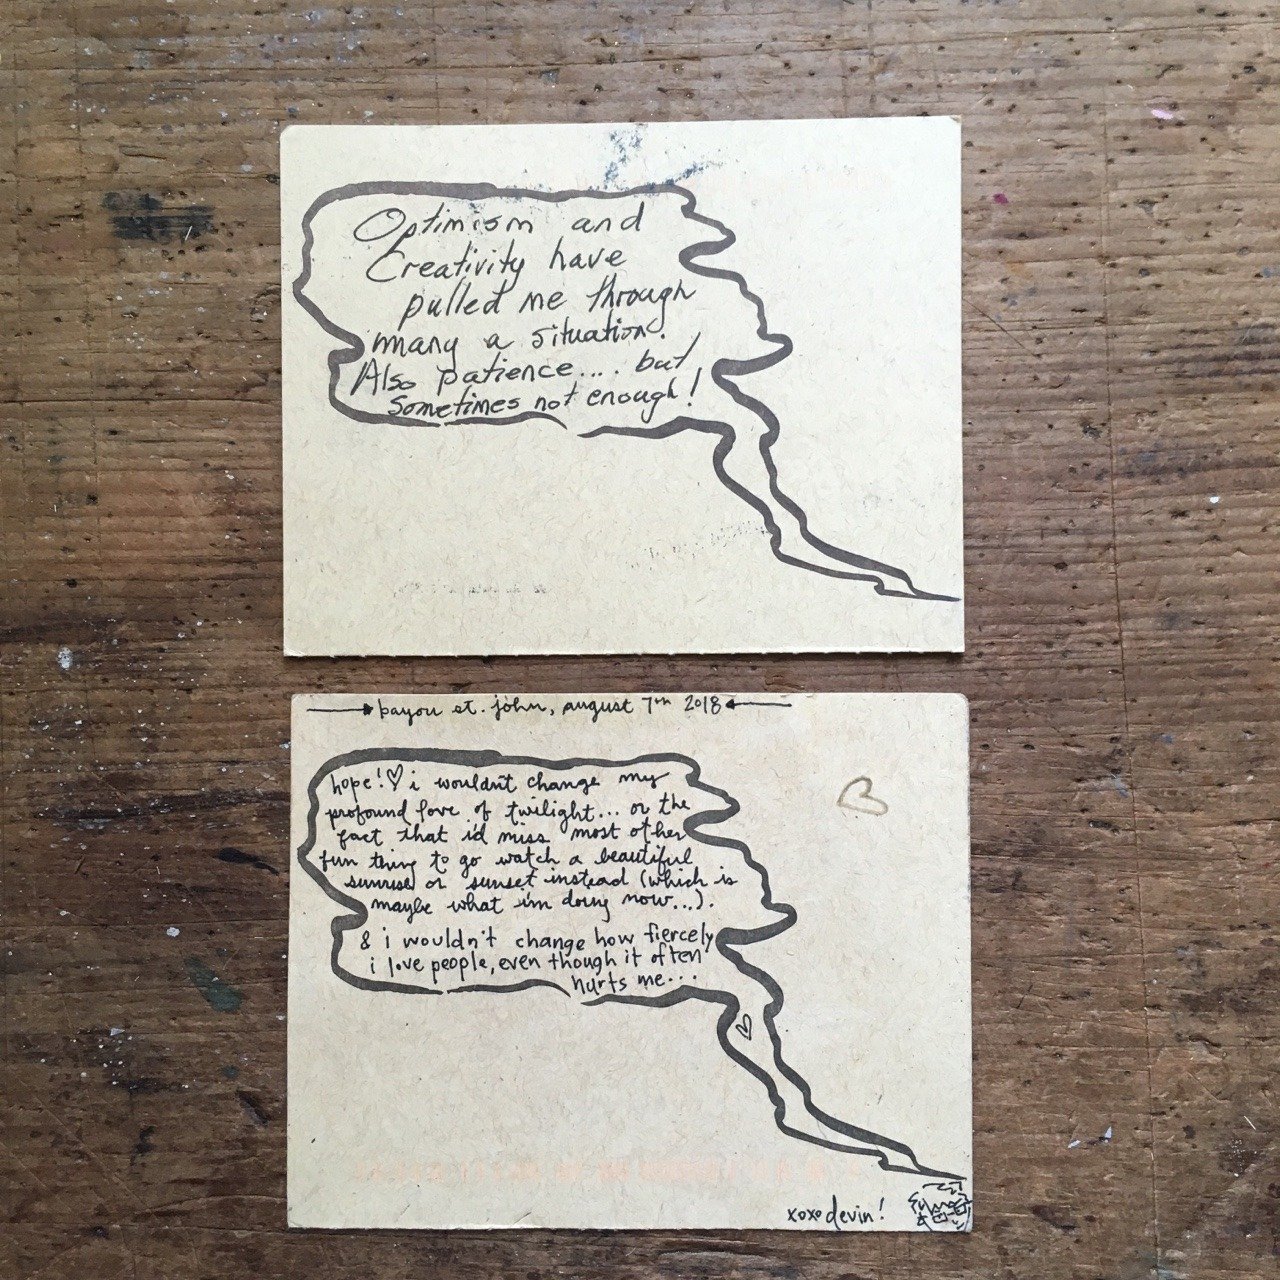 Optimism and
Creativity have
pulled me through
many a situation.
Also patience.... but
Sometimes not enough!
bayou st. john, august 7th 2018
hope! ♡ i wouldn't change my
profound love of twilight... or the
fact that i'd miss most other
fun thing to go watch a beautiful
sunrise or sunset instead (which is
maybe what i'm doing now...).
& i wouldn't change how fiercely
i love people, even though it often
hurts me...
xoxo devin!